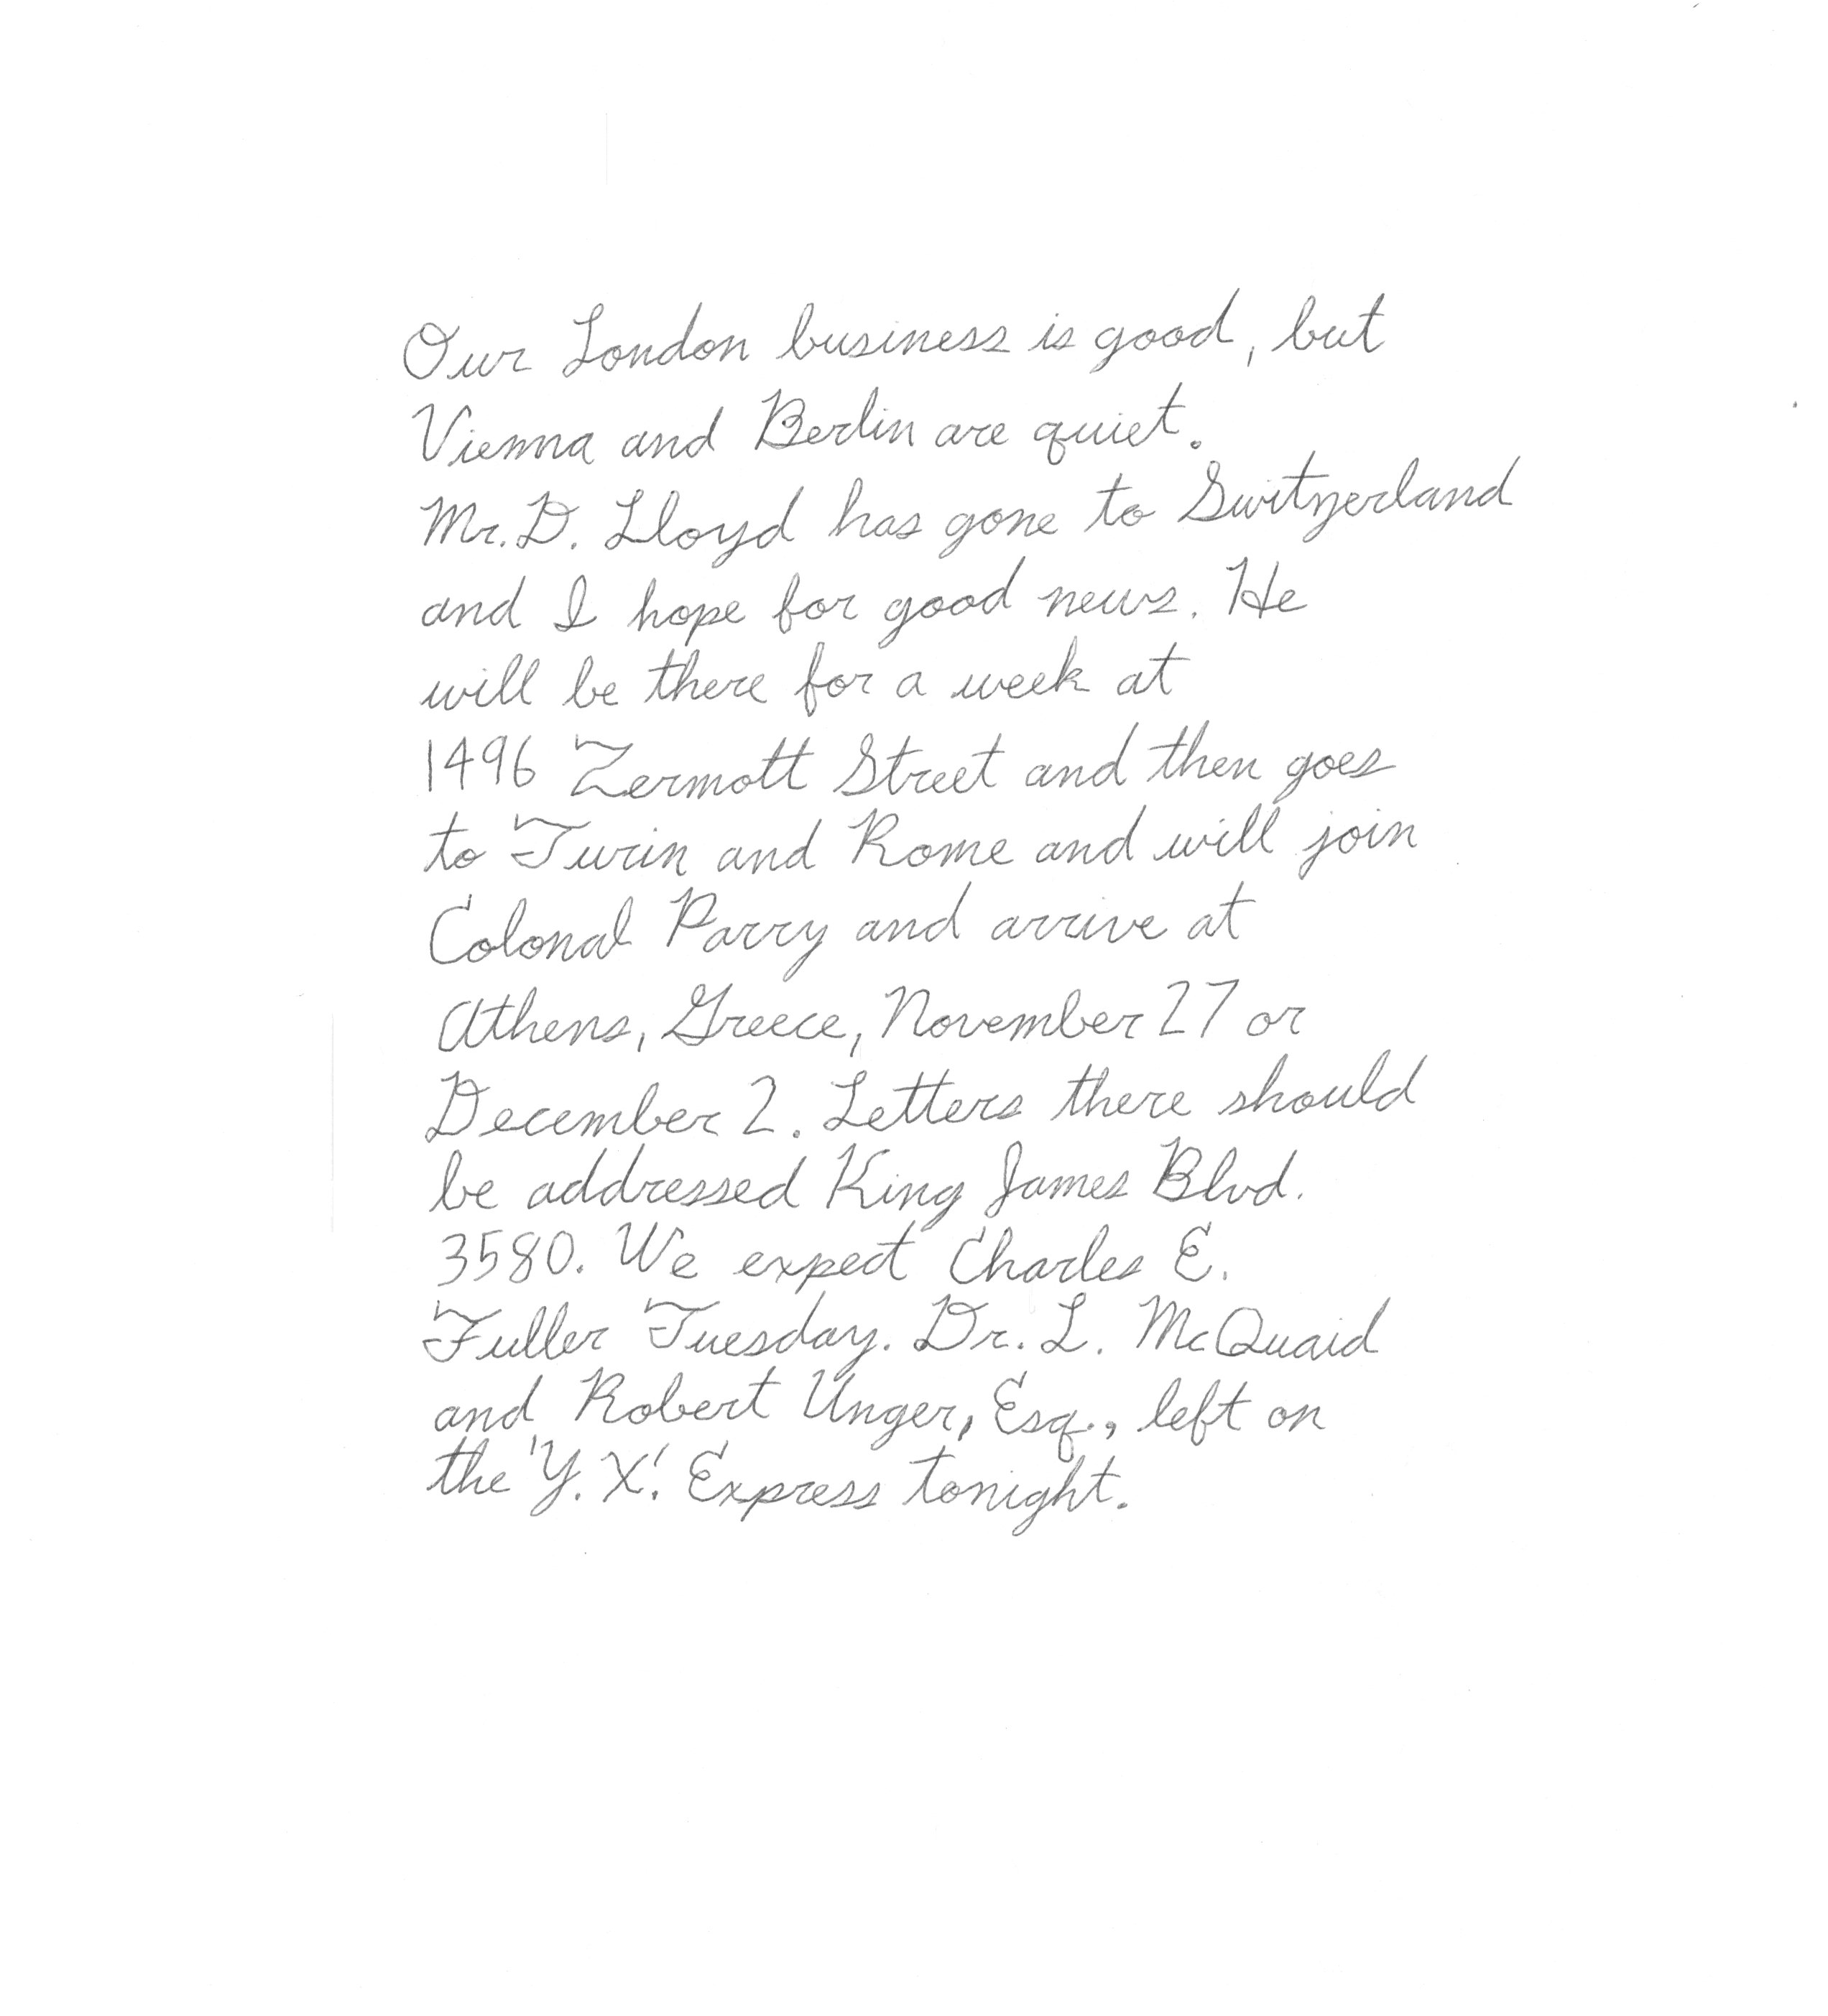 Our London business is good, but
Vienna and Berlin are quiet.
Mr. D. Lloyd has gone to Switzerland
and I hope for good news. He
will be there for a week at
1496 Zermott Street and then goes
to Turin and Rome and will join
Colonal Parry and arrive at
Athens, Greece, November 27 or
December 2. Letters there should
be addressed King James Blvd.
3580. We expect Charles E.
Fuller Tuesday. Dr. L. McQuaid
and Robert Unger, Esq., left on
the 'Y. X.' Express tonight.